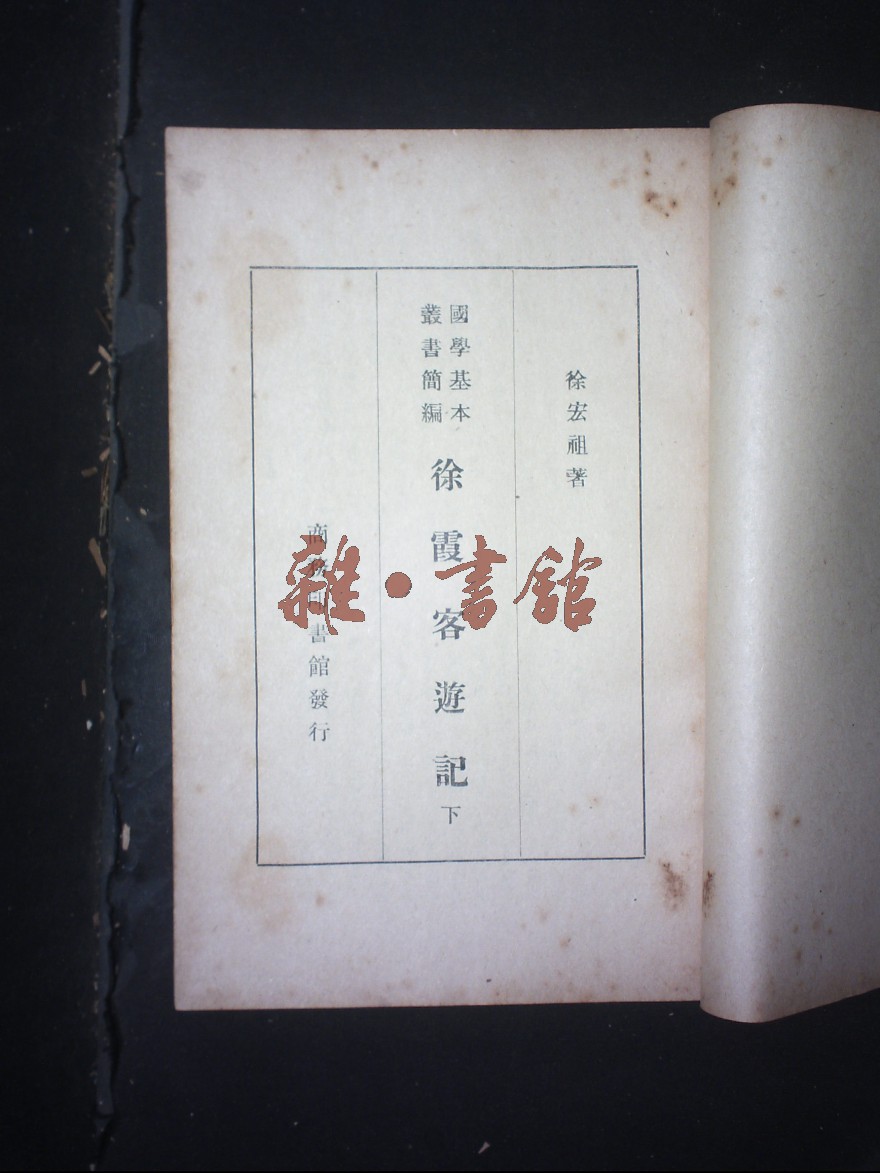 徐宏祖著
國學基本
叢書簡編
徐霞客遊記
下
商務印書館發行
雜·書館